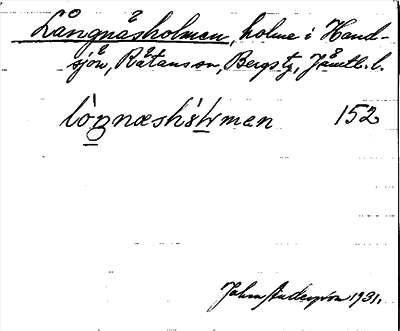 Långnäsholmen, holme i Hand-
sjön, Rätans sn, Bergs tg, Jämtl. l.
152
John Anderson 1931.